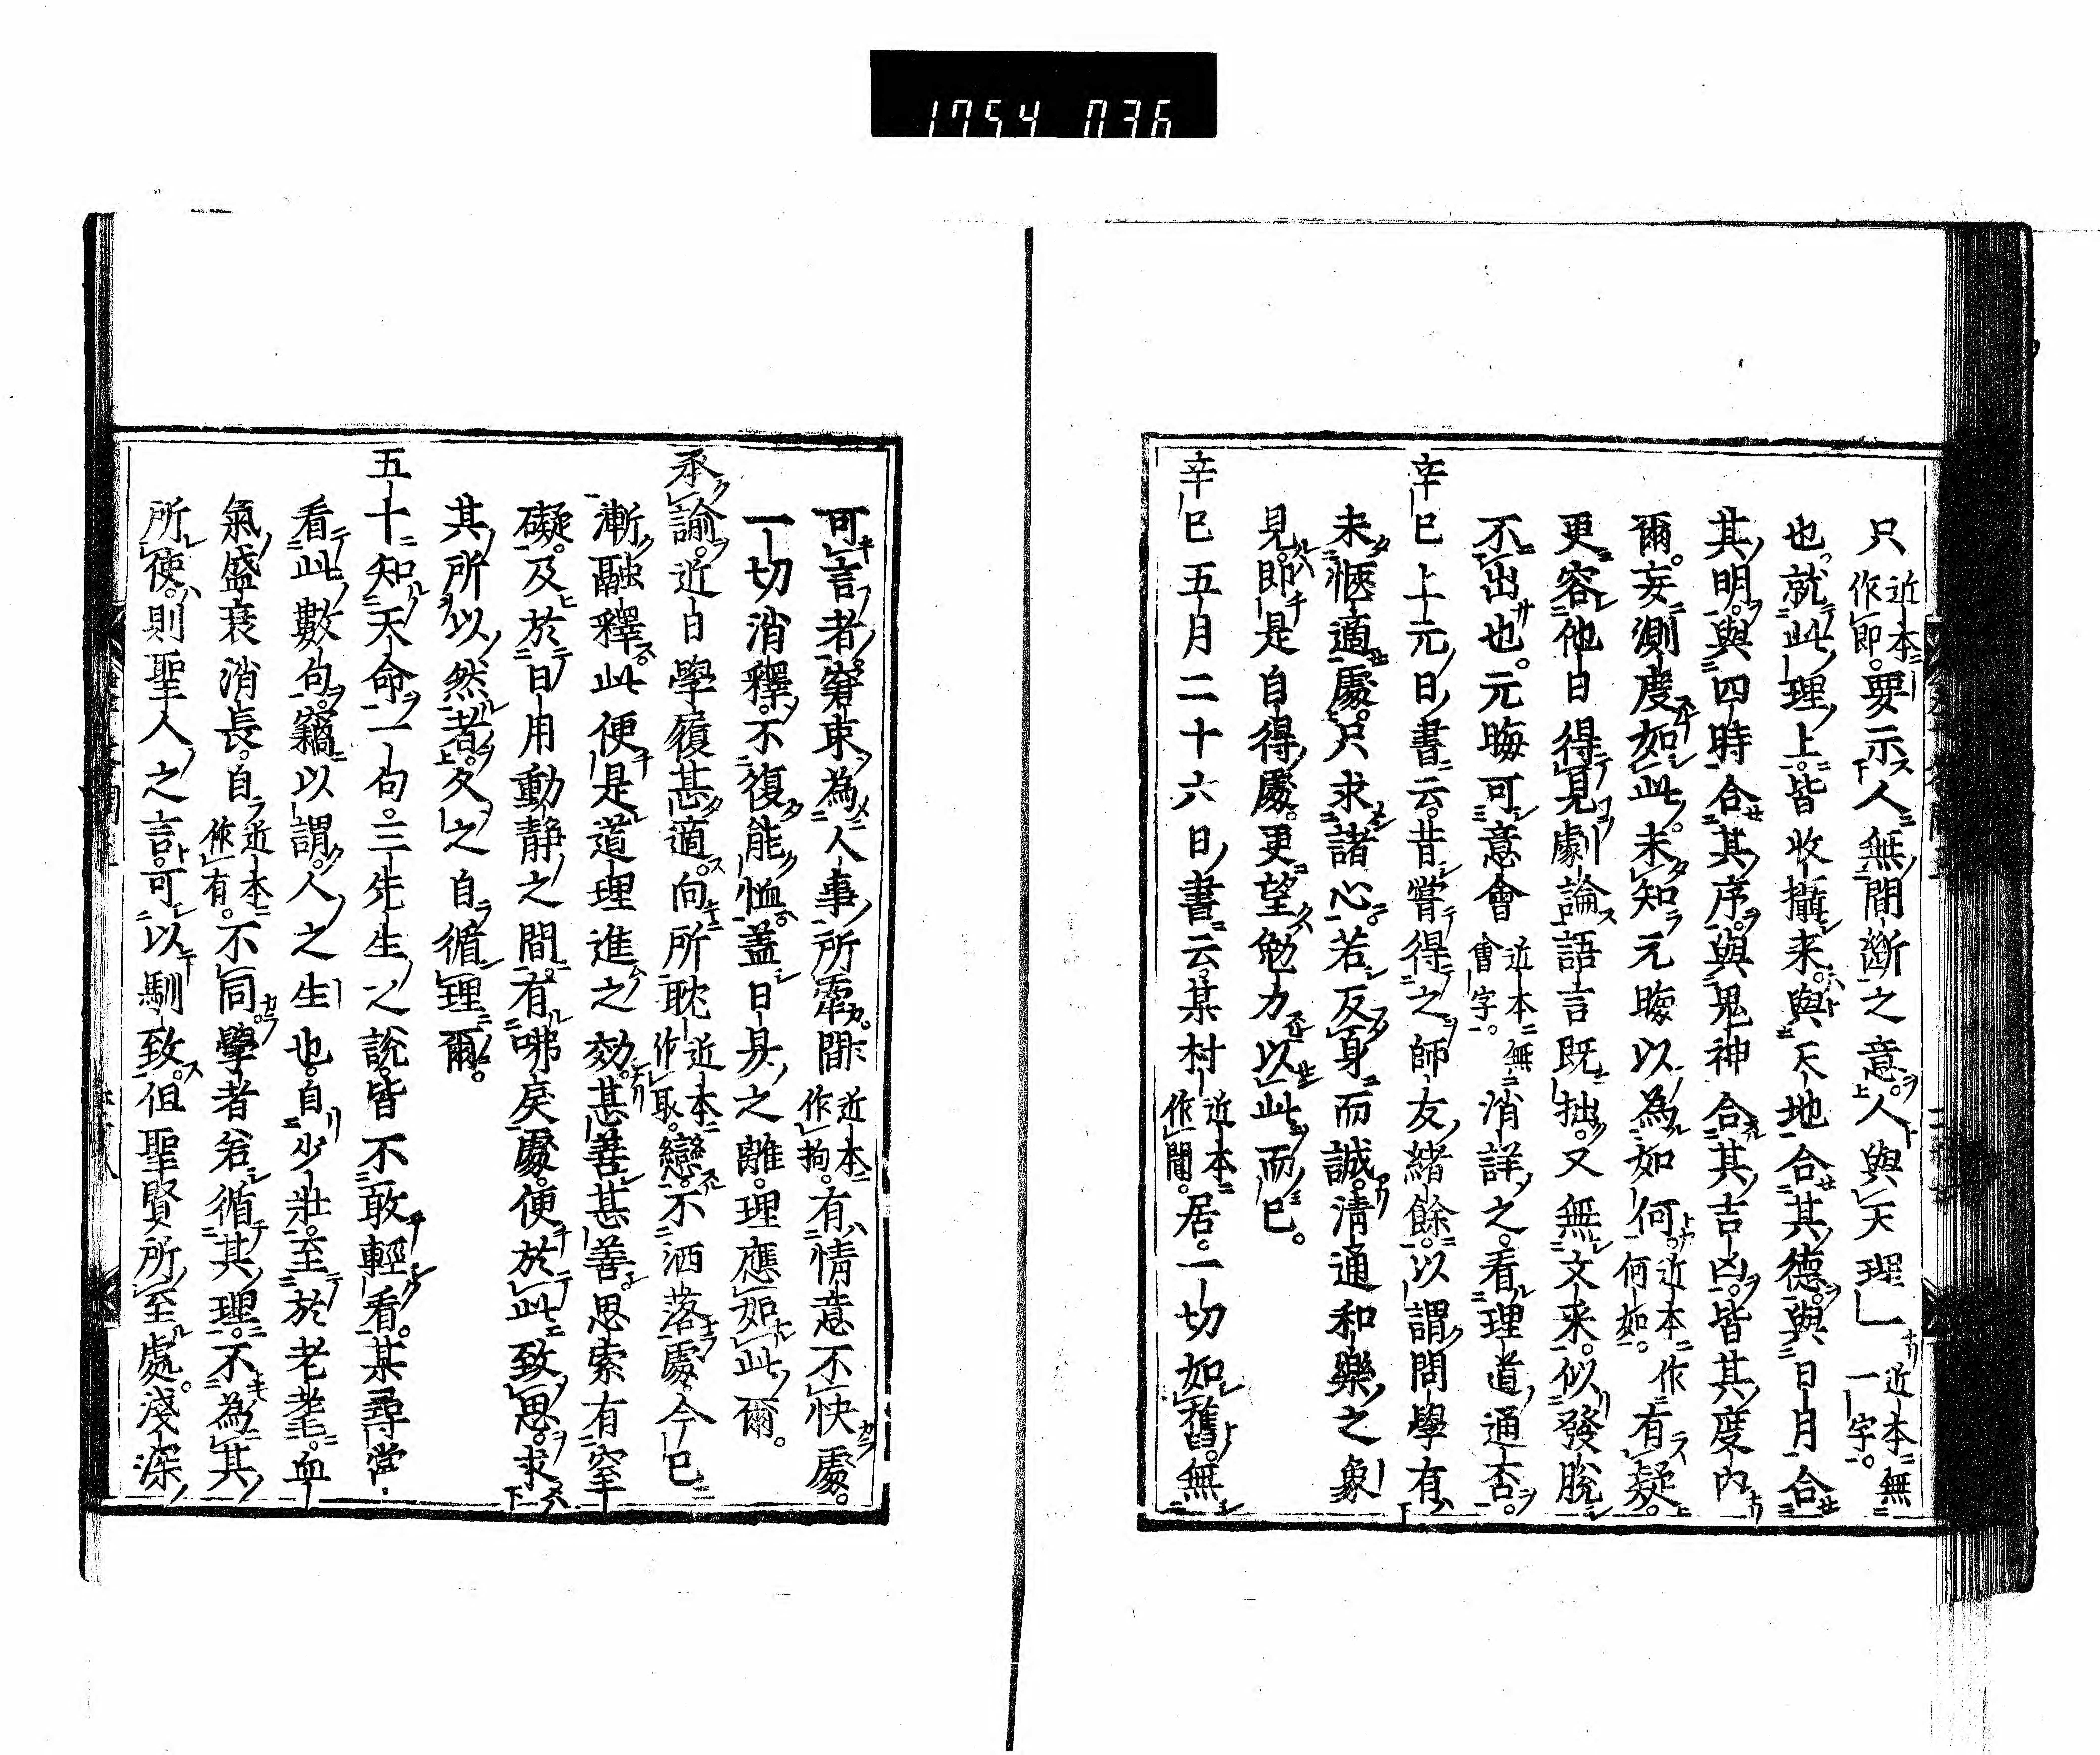 1754 036
只近本作即。要示人無間斷之意。人與天理一近本無一字。
也。就此理上。皆收攝来。與天地合其德。與日月合
其明。與四時合其序。與鬼神合其吉凶。皆其度内
爾。妄測度如此。未知元晦以為如何。近本作何如。有疑。
更容他日得見劇論語言既拙。又無文来。似發脱
不出也。元晦可意會近本無會字。消詳之。看理道通否。
辛巳上元日書云。昔嘗得之師友緒餘。以謂問學有
未愜適處。只求諸心。若反身而誠。清通和樂之象
見。即是自得處。更望勉力以此而已。
辛巳五月二十六日書云。某村近本作閒。居。一切如舊。無
可言者。窘束為人事所牽。間近本作拘。有情意不快處。
一切消釋。不復能恤。蓋日昃之離。理應如此爾。
承諭。近日學履甚適。向所耽近本作取。戀。不洒落處。今已
漸融釋。此便是道理進之効。甚善甚善。思索有窒
礙。及於日用動靜之間。有咈戾處。便於此致思。求
其所以然者。久之自循理爾。
五十知天命一句。三先生之說。皆不敢輕看。某尋常
看此數句。竊以謂。人之生也。自少壯。至於老耄。血
氣盛衰消長。自近本作有。不同。學者若循其理。不為其
所使。則聖人之言。可以馴致。但聖賢所至處。淺深